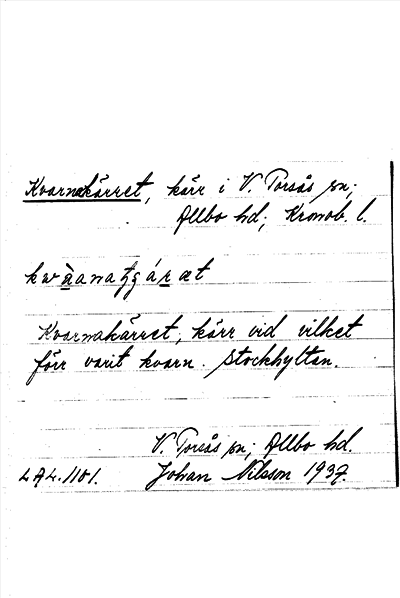 Kvarnakärret, kärr i V. Torsås sn;
Allbo hd; Kronob. l.
kwàanatgáræt
Kvarnakärret, kärr vid vilket
förr varit kvarn. Stockhyltan.
V. Torsås sn; Allbo hd.
LAL. 1101. Johan Nilsson 1937.